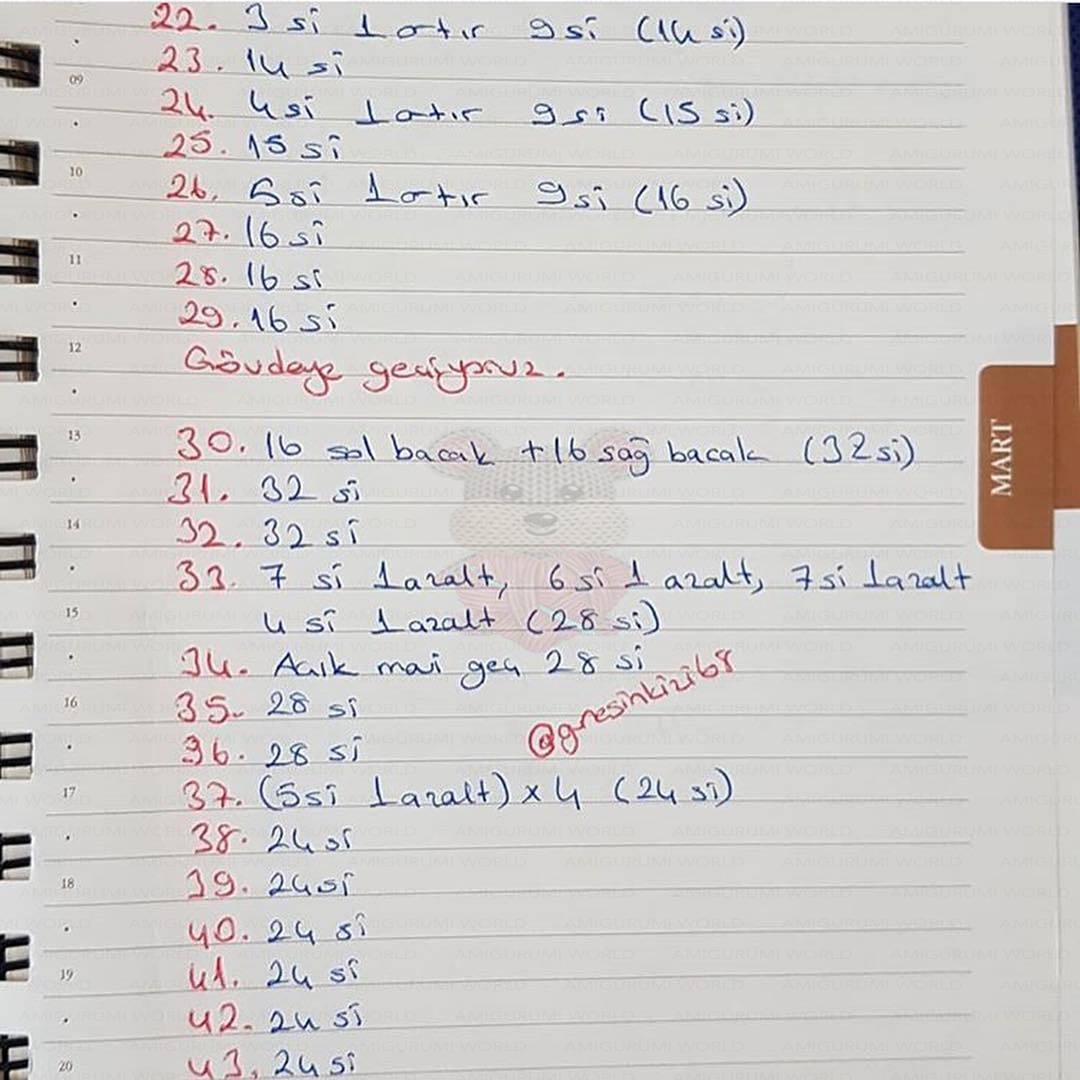 22. 3 si 1 artır 9 si (14 si)
09
23. 14 si
24. 4 si 1 artır 9 si (15 si)
25. 15 si
10
26. 5 si 1 artır 9 si (16 si)
27. 16 si
11
28. 16 si
29. 16 si
12
Gövdeye geçiyoruz.
13
30. 16 sol bacak +16 sağ bacak (32 si)
31. 32 si
14
32. 32 si
33. 7 si 1 azalt, 6 si 1 azalt, 7 si 1 azalt
15
4 si 1 azalt (28 si)
34. Açık mavi geç 28 si
16
35. 28 si
@gunesinkizi68
36. 28 si
17
37. (5si 1 azalt) x 4 (24 si)
38. 24 si
18
39. 24 si
40. 24 si
19
41. 24 si
42. 24 si
20
43. 24 si
MART
AMIGURUMI WORLD